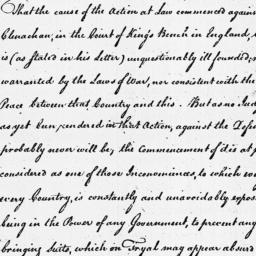 That the cause of the Action at Law commenced against
Clenachan, in the Court of Kings Bench in England,
is (as stated in his Letter) unquestionably ill founded,
warranted by the Laws of War, nor consistent with the
Peace between that Country and this. But as no Jud
as yet been rendered in that Action, against the Defe
probably never will be, the Commencement of it is at p
considered as one of those Inconveniences, to which eve
every Country, is constantly and unavoidably expos
being in the Power of any Government, to prevent any
bringing Suits, which on Tryal may appear absurd